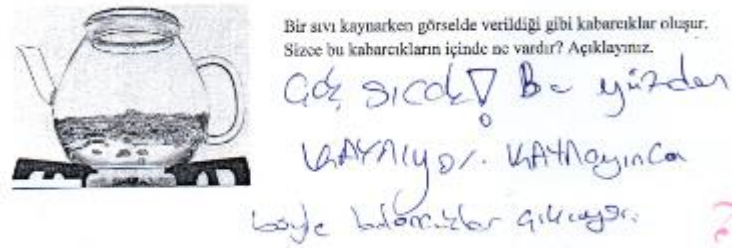 Bir sıvı kaynarken görselde verildiği gibi kabarcıklar oluşur.
Sizce bu kabarcıkların içinde ne vardır? Açıklayınız.
Çok sıcak! Bu yüzden
kaynıyor. kaynayınca
böyle baloncuklar çıkıyor.
?